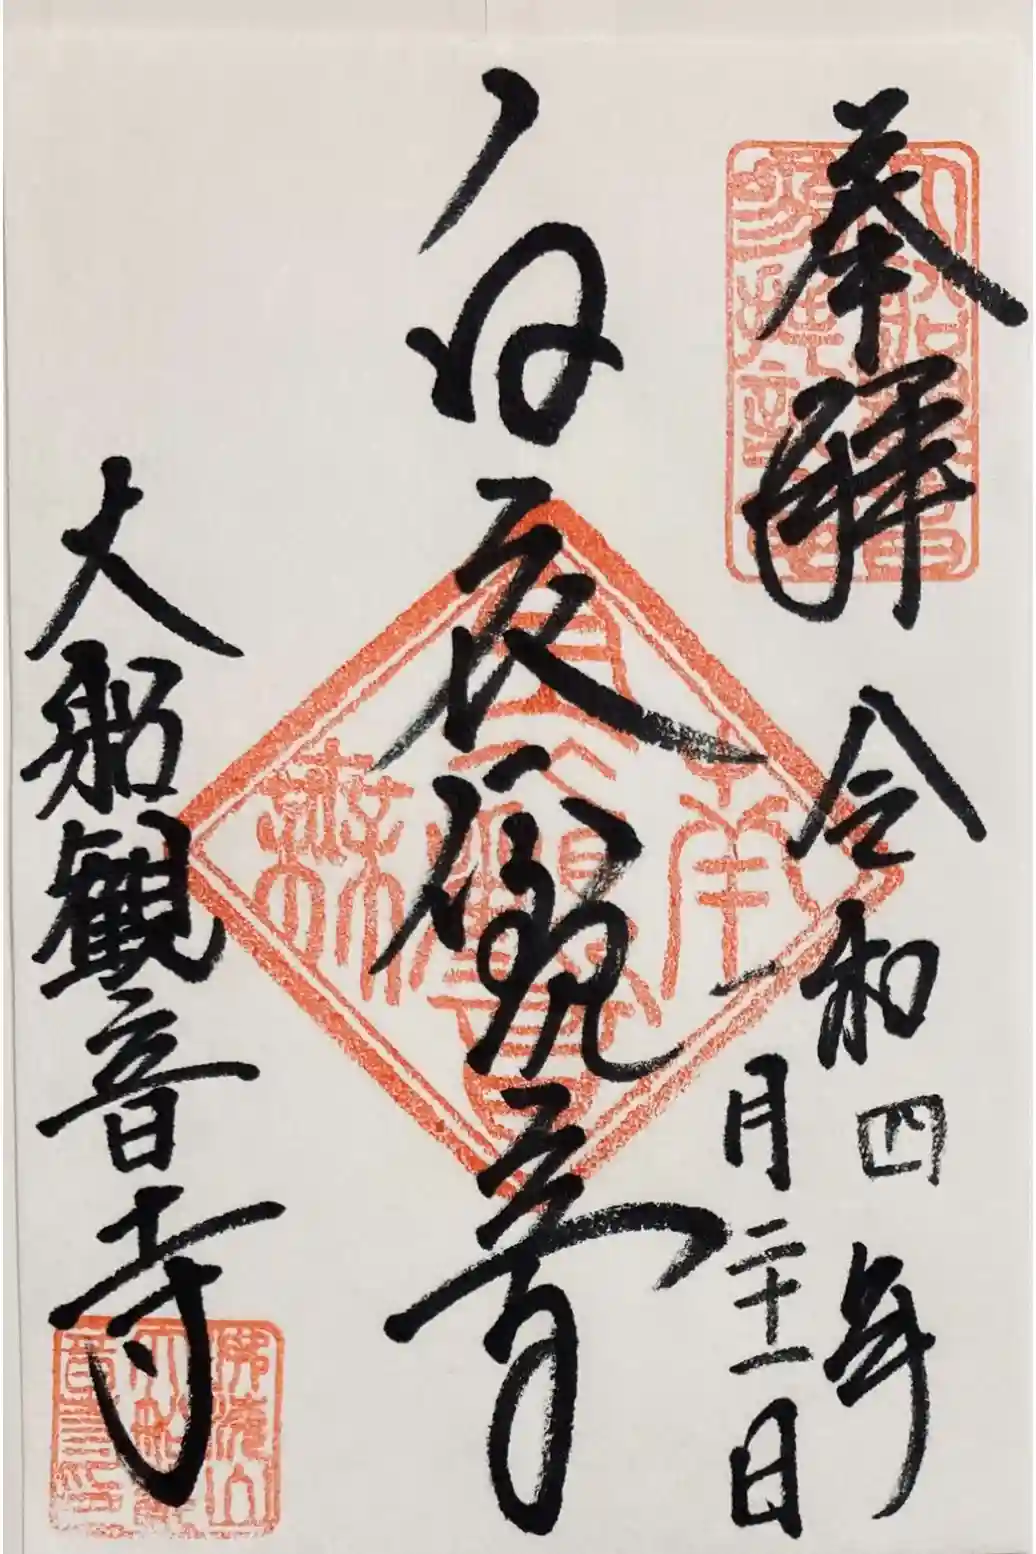 奉拝
令和四年
一月二十一日
白衣観音
大船観音寺